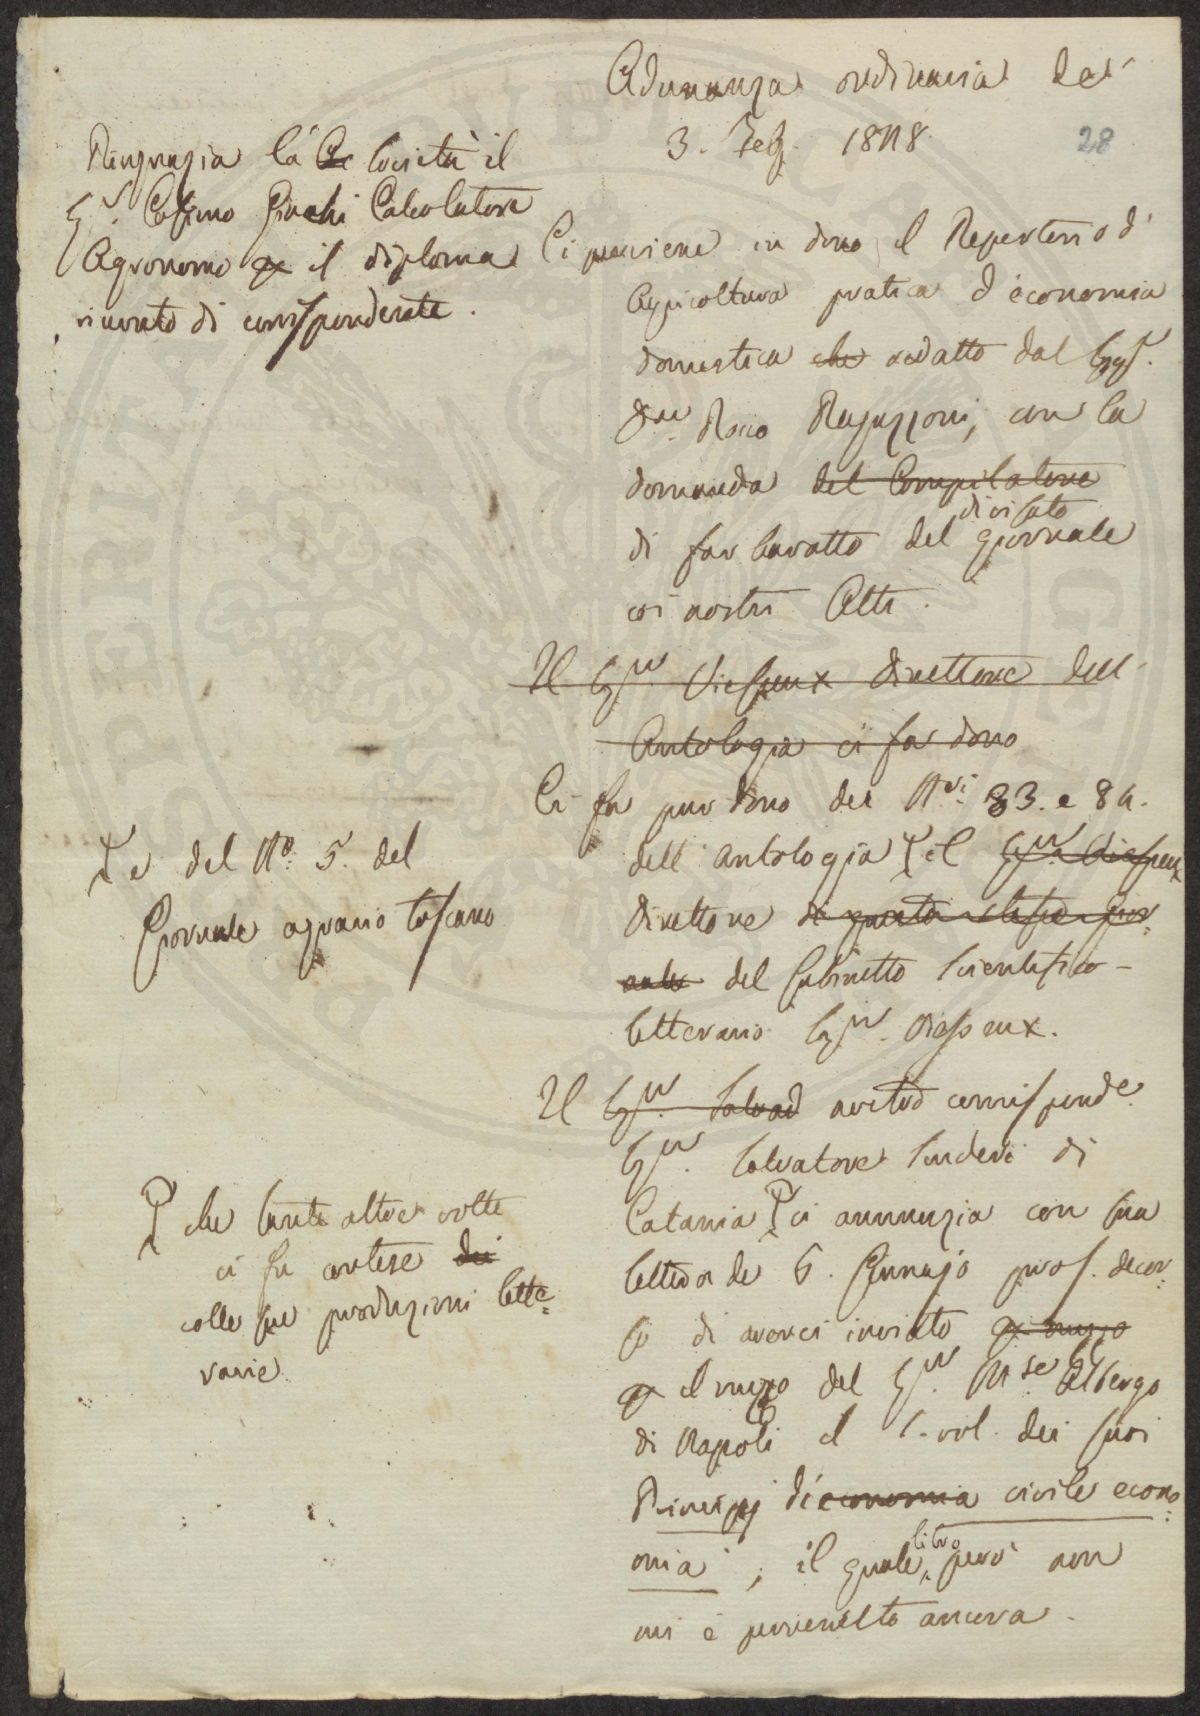 Adunanza ordinaria de'
3. Feb. 1828.
28
Ringrazia la Società il
Sr. Cosimo Giuchi Calcolatore
Agronomo per il diploma
ricevuto di corrispondente.
Ci perviene in dono il Repertorio d'
Agricoltura pratica d'economia
domestica che redatto dal Sigr.
Rocco Ragazzoni, con la
domanda del Compilatore
divisato
di far baratto del giornale
coi nostri Atti.
Il Sigr. Viesseux direttore dell'
Antologia ci fa dono
Ci fa pur dono dei Nri. 83. e 84.
dell'antologia Γ il Sigr. Viesseux
direttore di questo stesso gior=
nale del Gabinetto scientifico-
letterario Sigr. Viesseux.
Γ e del No. 5. del
Giornale agrario toscano
Il Sigr. Salvad nostro corrisponde.
Sigr. Salvatore Scuderi di
Catania Γ ci annunzia con sua
lettera de 6. Gennajo pros. decor=
so di averci inviato per mezzo
per il mezzo del Sigr. Mse. Albergo
di Napoli il 1. vol. dei suoi
Principj di economia civile econo=
mia; il quale libro però non
mi è pervenuto ancora.
Γ che tante altre volte
ci fu cortese dei
colle sue produzioni lette=
rarie